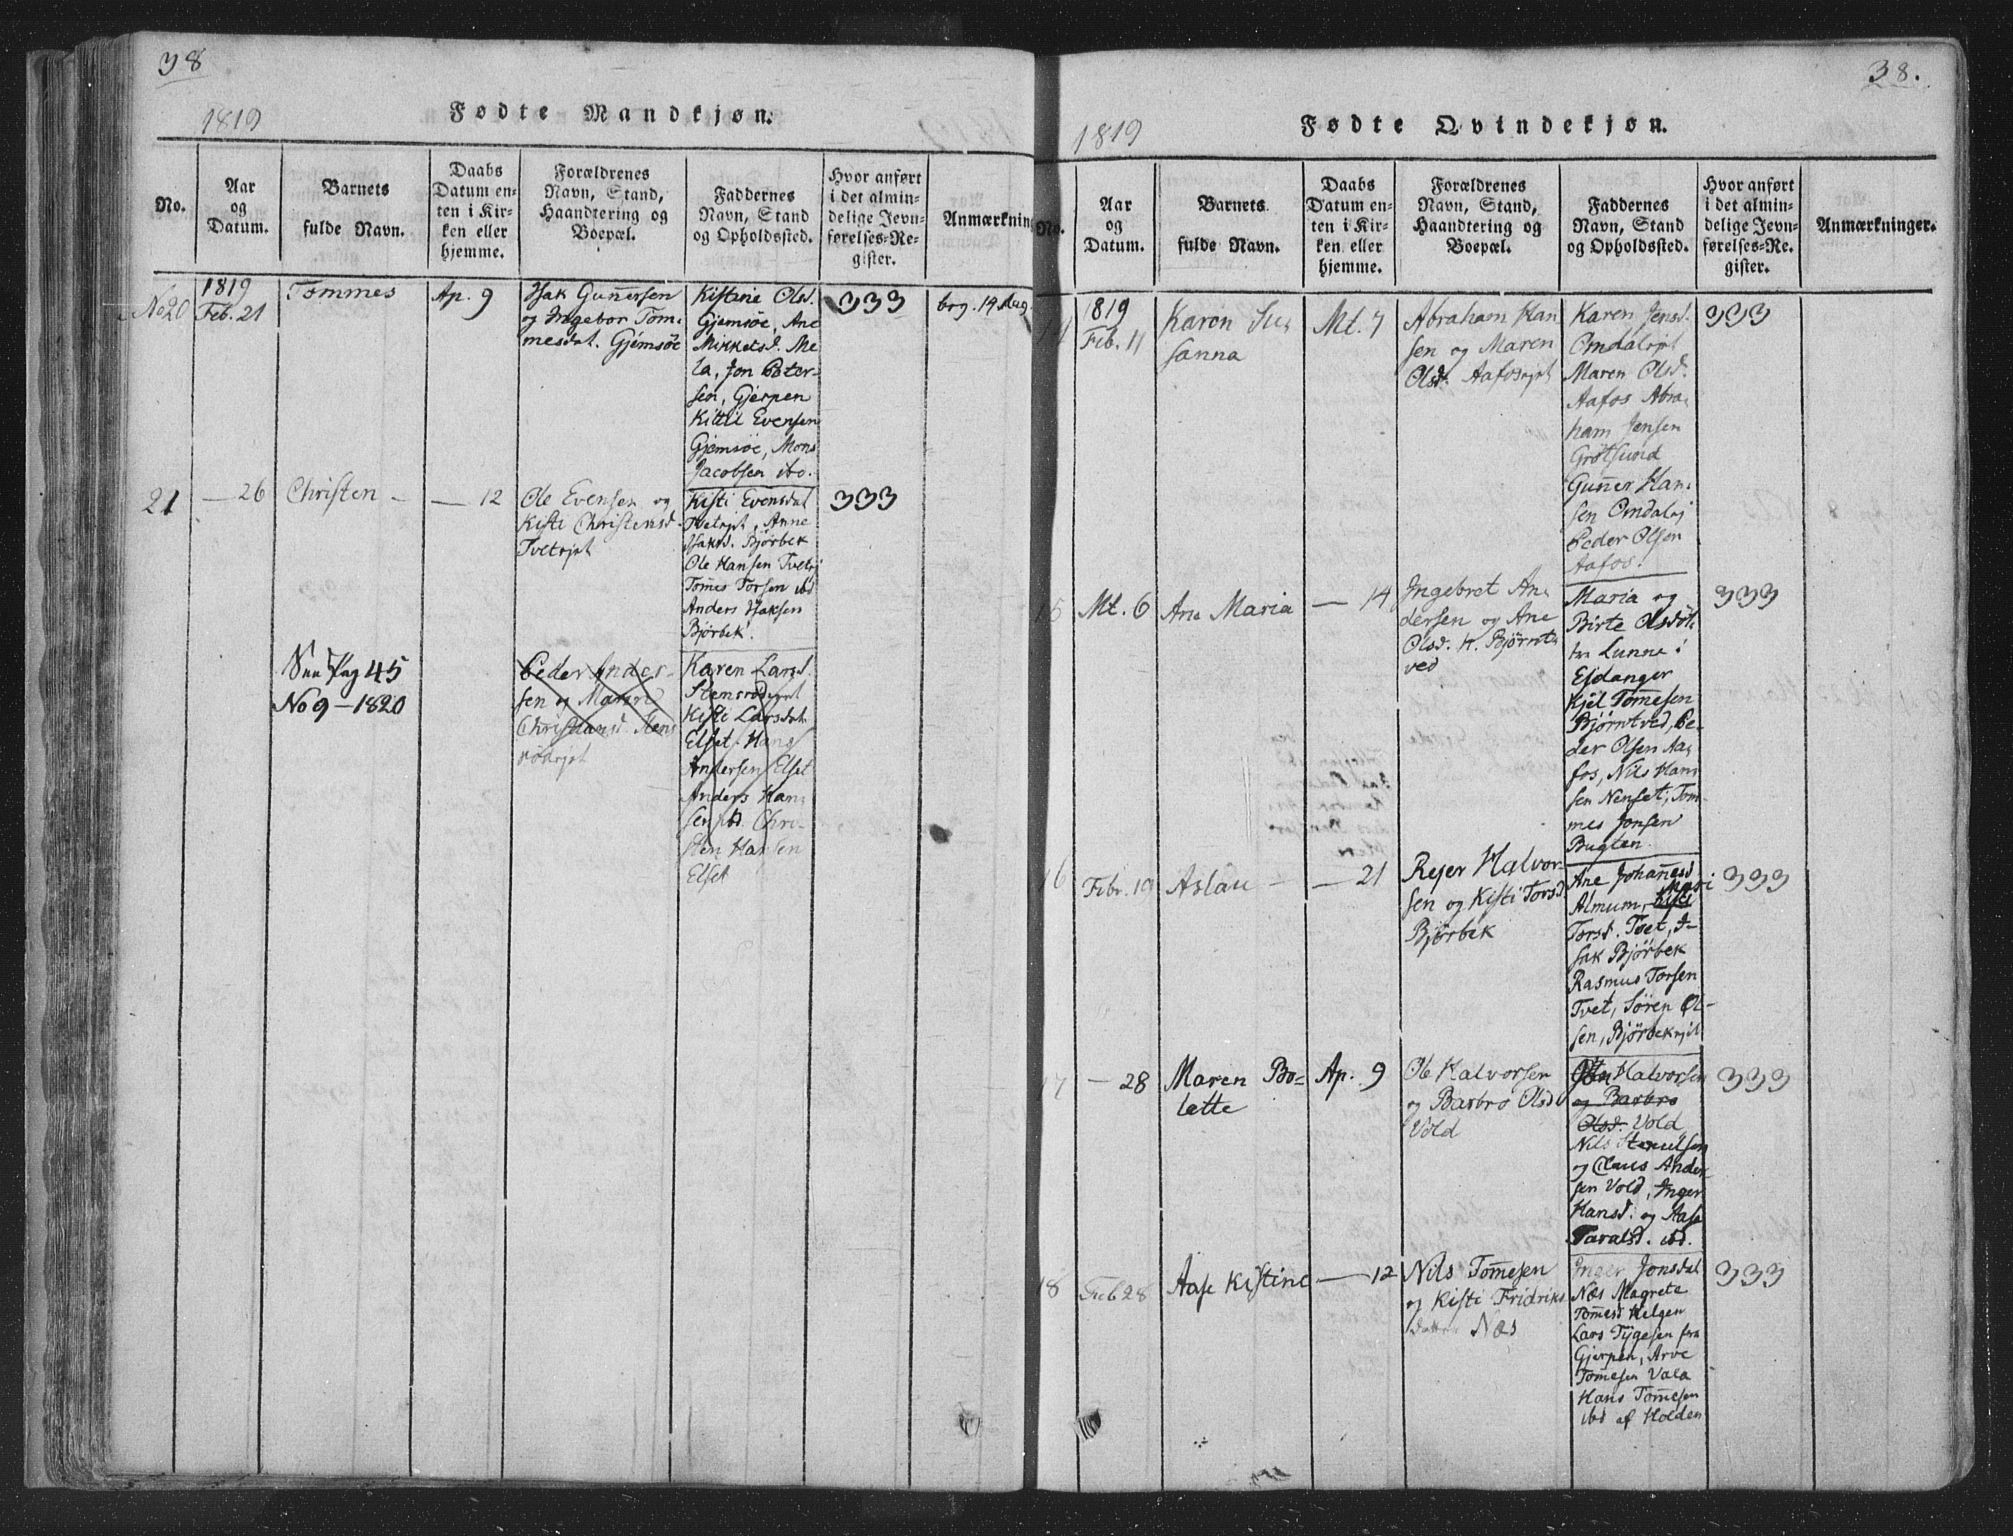 38
1819
Fødte Mandkjøn.
No.
Aar
og
Datum.
Barnets
fulde Navn.
Daabs
Datum en-
ten i Kir-
ken eller
hjemme.
Forældrenes
Navn, Stand,
Haandtering og
Boepæl.
Faddernes
Navn, Stand
og Opholdssted.
Hvor anført
i det almin-
delige Jevn-
førelses-Re-
gister.
Anmærkning
No 20
1819
Feb. 21
Tommes
Ap. 9
Isak Gunnersen
og Ingebor Tom-
mesdat. Gjemsöe
Kistine Olsd.
Gjemsöe, Ane
Mikkelsd. Me
la, Jon Peter-
sen, Gjerpen
Kittil Evensen
Gjemsöe, Mons
Jacobsen ibo.
333
beg. 14 Aug
21
— 26
Christen —
— 12
Ole Evensen og
Kisti Christensd.
Tvetejet
Kisti Evensdat
Tvetejet, Anne
Isaksd. Björbek
Ole Hansen Tvetej
Tomes Torsen ibd
Anders Isaksen
Björbek.
333
Pag 45
No 9 — 1820
Peder Ander-
sen og Maren
Christiansd. Stens
rödejet
Karen Larsd.
Stensrödejet
Kisti Larsdat.
Elset. Hans
Andersen Elset
Anders Han-
sen ibd. Chri-
sten Hansen
Elset
38.
1819
Fødte Qvindekjøn.
No.
Aar
og
Datum.
Barnets
fulde Navn.
Daabs
Datum en-
ten i Kir-
ken eller
hjemme.
Forældrenes
Navn, Stand,
Haandtering og
Boepæl.
Faddernes
Navn, Stand
og Opholdssted.
Hvor anført
i det almin-
delige Jevn-
førelses-Re-
gister.
Anmærkninger.
14
1819
Feb. 11
Karen Su-
sanna
Mt. 7
Abraham Han
sen og Maren
Olsd. Aafosejet
Karen Jensd.
Omdalejet
Maren Olsd.
Aafos Abra-
ham Jensen
Grötsund
Gunner Han-
sen Omdalej
Peder Olsen
Aafos.
333
15
Mt. 6
Ane Maria
— 14
Ingebret An-
dersen og Ane
Olsd. H. Björnt-
ved
Maria og
Birte Olsdöt-
tre Lunne i
Eidanger
Kjel Tomesen
Björntved, Pe-
der Olsen Aa-
fos, Nils Han-
sen Nenset, Tom
mes Jonsen
Bugten.
333
16
Febr. 10
Aslau —
— 21
Rejer Halvor-
sen og Kisti Torsd
Björbek
Ane Johannesd
Almum, Kisti Mari
Torsd. Tvet, I-
sak Björbek
Rasmus Torsen
Tvet, Sören Ol-
sen, Björbekejet
333
17
— 28
Maren Bo-
lette
Ap. 9
Ole Halvorsen
og Barbro Olsd
Vold
Halvorsen
og Barbro
Olsd. Vold
Nils Stenulsen
og Claus Ander
sen Vold, Inger
Hansd. og Aase
Taralsd. ibd.
333
18
Feb 28
Aase Kistine
— 12
Nils Tomesen
og Kisti Fridriks
datter Næs
Inger Jonsdat
Næs Magrete
Tomesd Helgen
Lars Tygesen fra
Gjerpen, Arve
Tomesen Vala
Hans Tomesen
ibd af Holden
333